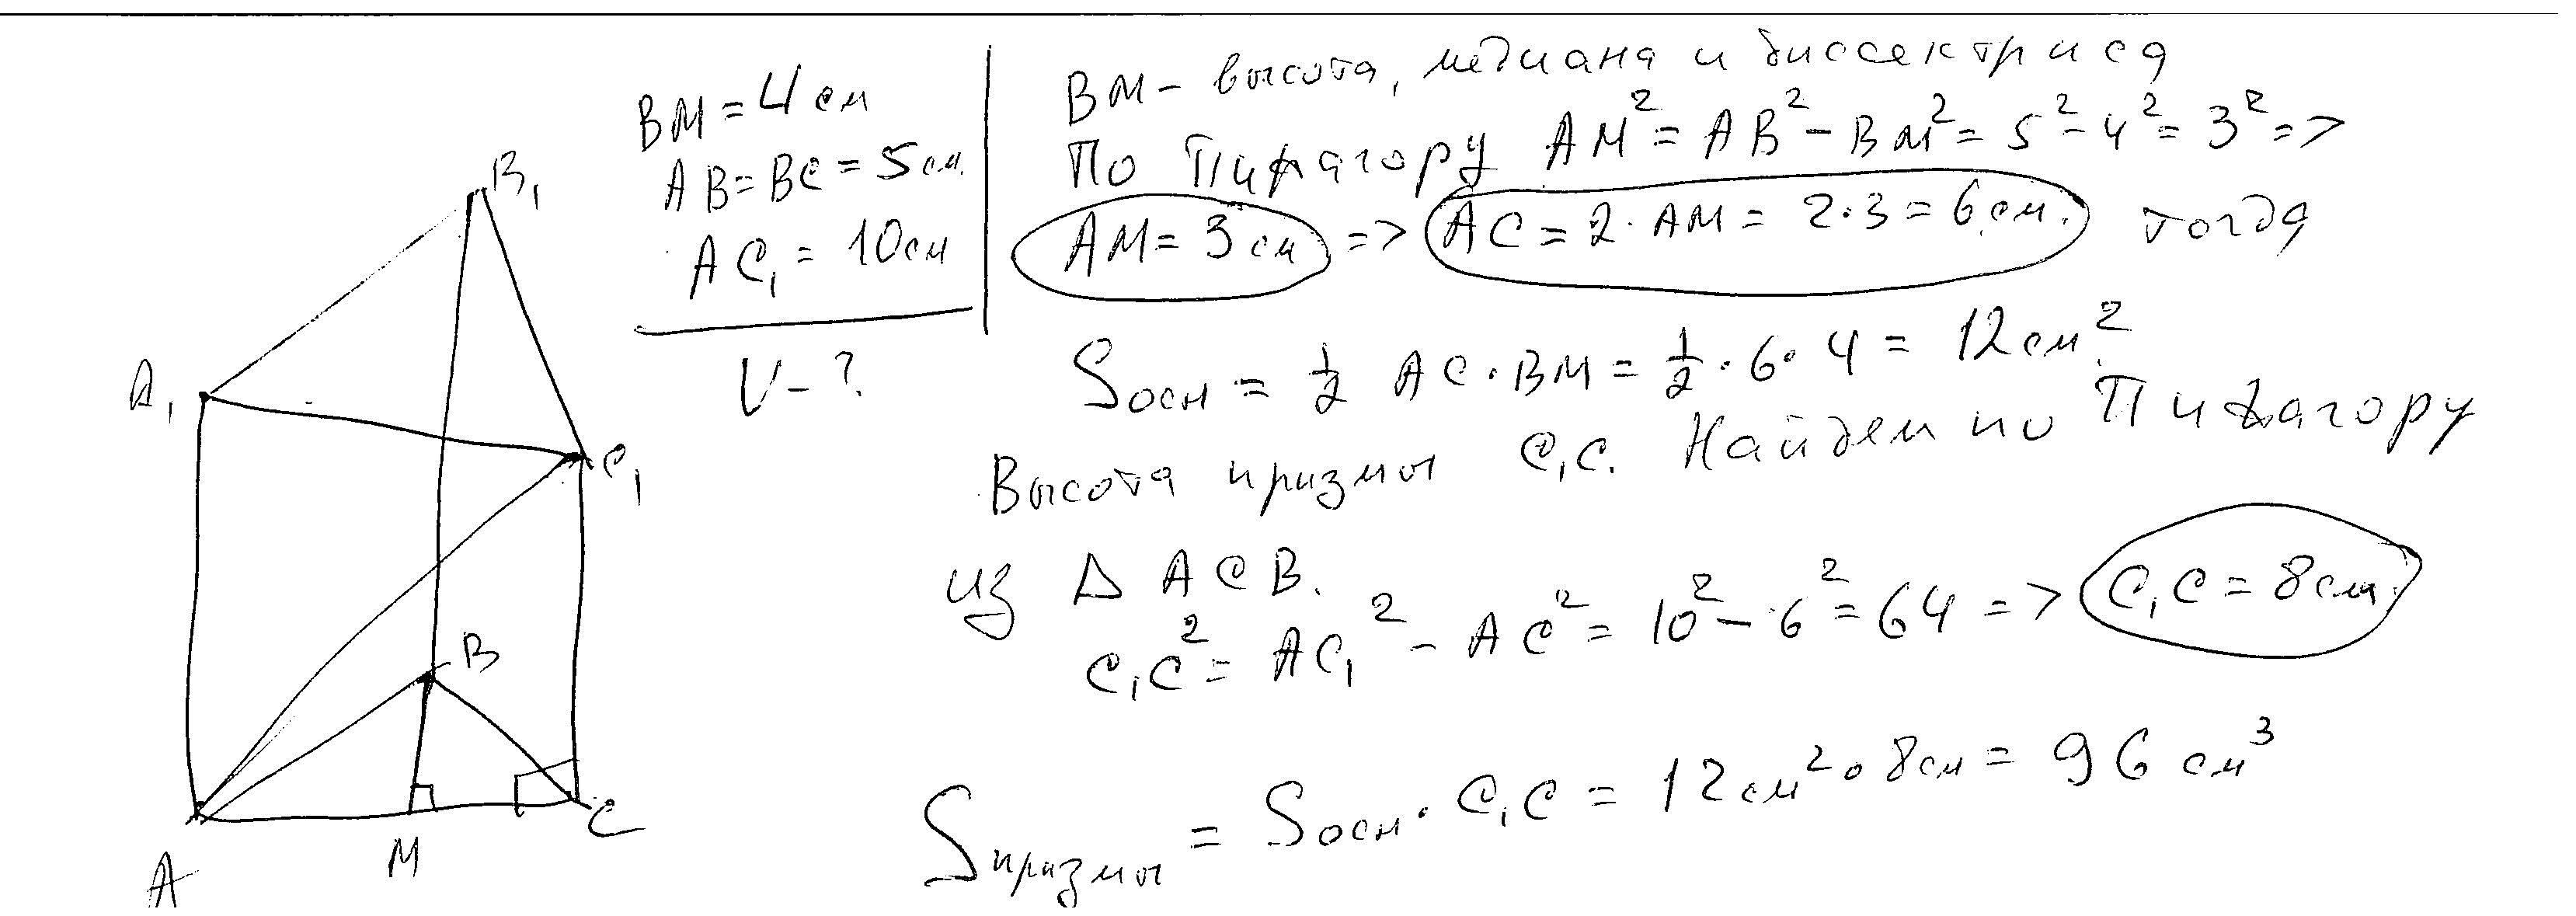 BM = 4 см
AB = BC = 5 см.
AC₁ = 10 см
V - ?
B₁
A₁
C₁
B
A
M
C
BM - высота, медиана и биссектриса
По Пифагору AM² = AB² - BM² = 5² - 4² = 3² =>
AM = 3 см => AC = 2 · AM = 2 · 3 = 6 см. тогда
Sосн = 1/2 AC · BM = 1/2 · 6 · 4 = 12 см².
Высота призмы C₁C. Найдем по Пифагору
из Δ ACB.
C₁C² = AC₁² - AC² = 10² - 6² = 64 => C₁C = 8 см.
Sпризмы = Sосн · C₁C = 12 см² · 8 см = 96 см³